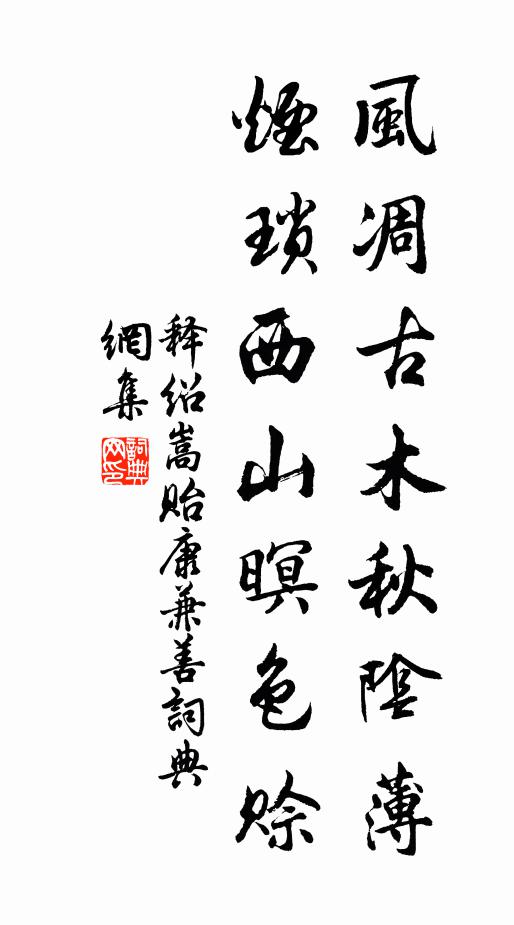 風凋古木秋陰薄
煙瑣西山暝色賒
释绍嵩貽康兼善詞典
網集
詞典
网印